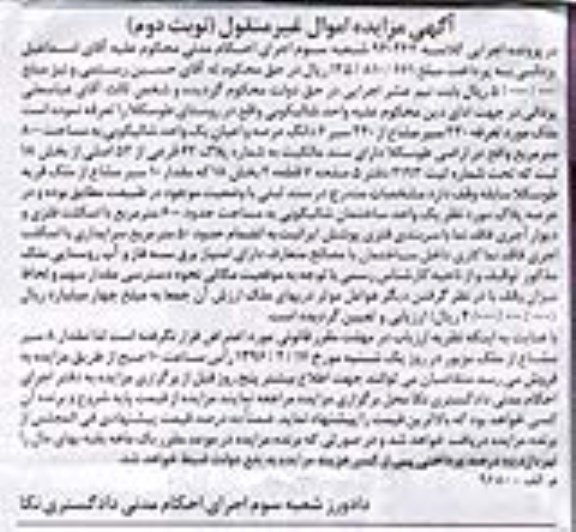 آگهی مزایده اموال غیر منقول (نوبت دوم)
در پرونده اجرایی کلاسه شعبه سوم اجرای احکام مدنی محکوم علیه آقای اسماعیل
به پرداخت مبلغ ریال در حق محکوم له آقای حسین رستمی و نیز مبلغ
ریال بابت نیم عشر اجرایی در حق دولت محکوم گردیده و شخص ثالث آقای عباسعلی
در جهت ادای دین محکوم علیه واحد شالیکوبی واقع در روستای طوسکلا را تعرفه نموده است
ملک مورد تعرفه ۲۴۰ سیر مشاع از ۲۴۰ سیر ۶ دانگ عرصه و اعیان یک واحد شالیکوبی به مساحت ۸۰۰
متر مربع واقع در اراضی طوسکلا دارای سند مالکیت به شماره پلاک فرعی از ۵۳ اصلی از بخش ۱۸
ثبت که تحت شماره ثبت دفتر ۵ صفحه بخش ۱۸ که مقدار ۱۰ سیر مشاع از ملک قریه
طوسکلا سابقه وقف دارد مشخصات مندرج در سند ثبتی با وضعیت موجود در طبیعت مطابق بوده و در
عرصه پلاک مورد نظر یک واحد ساختمان شالیکوبی به مساحت حدود ۶۰۰ متر مربع با اسکلت فلزی و
دیوار آجری فاقد نما با سربندی فلزی پوشش ایرانیت به انضمام حدود ۵۰ متر مربع سرایداری با اسکلت
آجری فاقد نما کاری داخل ساختمان با مصالح متعارف دارای امتیاز برق سه فاز و آب روستایی ملک
مذکور توقیف و از ناحیه کارشناس رسمی با توجه به موقعیت مکانی نحوه دسترسی مقدار سهم و لحاظ
میزان وقف با در نظر گرفتن دیگر عوامل موثر در بهای ملک ارزش آن جمعا به مبلغ چهار میلیارد ریال
(۴/۰۰۰/۰۰۰/۰۰۰ ریال) ارزیابی و تعیین گردیده است.
با عنایت به اینکه نظریه ارزیاب در مهلت مقرر قانونی مورد اعتراض قرار نگرفته است لذا مقدار ۸ سیر
مشاع از ملک مزبور در روز یک شنبه مورخ ۱۳۹۶/۴/ راس ساعت ۱۰ صبح از طریق مزایده به
فروش می رسد متقاضیان می توانند جهت اطلاع بیشتر پنج روز قبل از برگزاری مزایده به دفتر اجرای
احکام مدنی دادگستری نکا محل برگزاری مزایده مراجعه نمایند مزایده از قیمت پایه شروع و برنده آن
کسی خواهد بود که بالاترین قیمت را پیشنهاد نماید. ضمناً ده درصد قیمت پیشنهادی فی المجلس از
برنده مزایده دریافت خواهد شد و در صورتی که برنده مزایده در موعد مقرر یک ماهه بقیه بهای مال را
نپردازد ده درصد پرداختی پس از کسر هزینه مزایده به نفع دولت ضبط خواهد شد.
م الف
دادورز شعبه سوم اجرای احکام مدنی دادگستری نکا